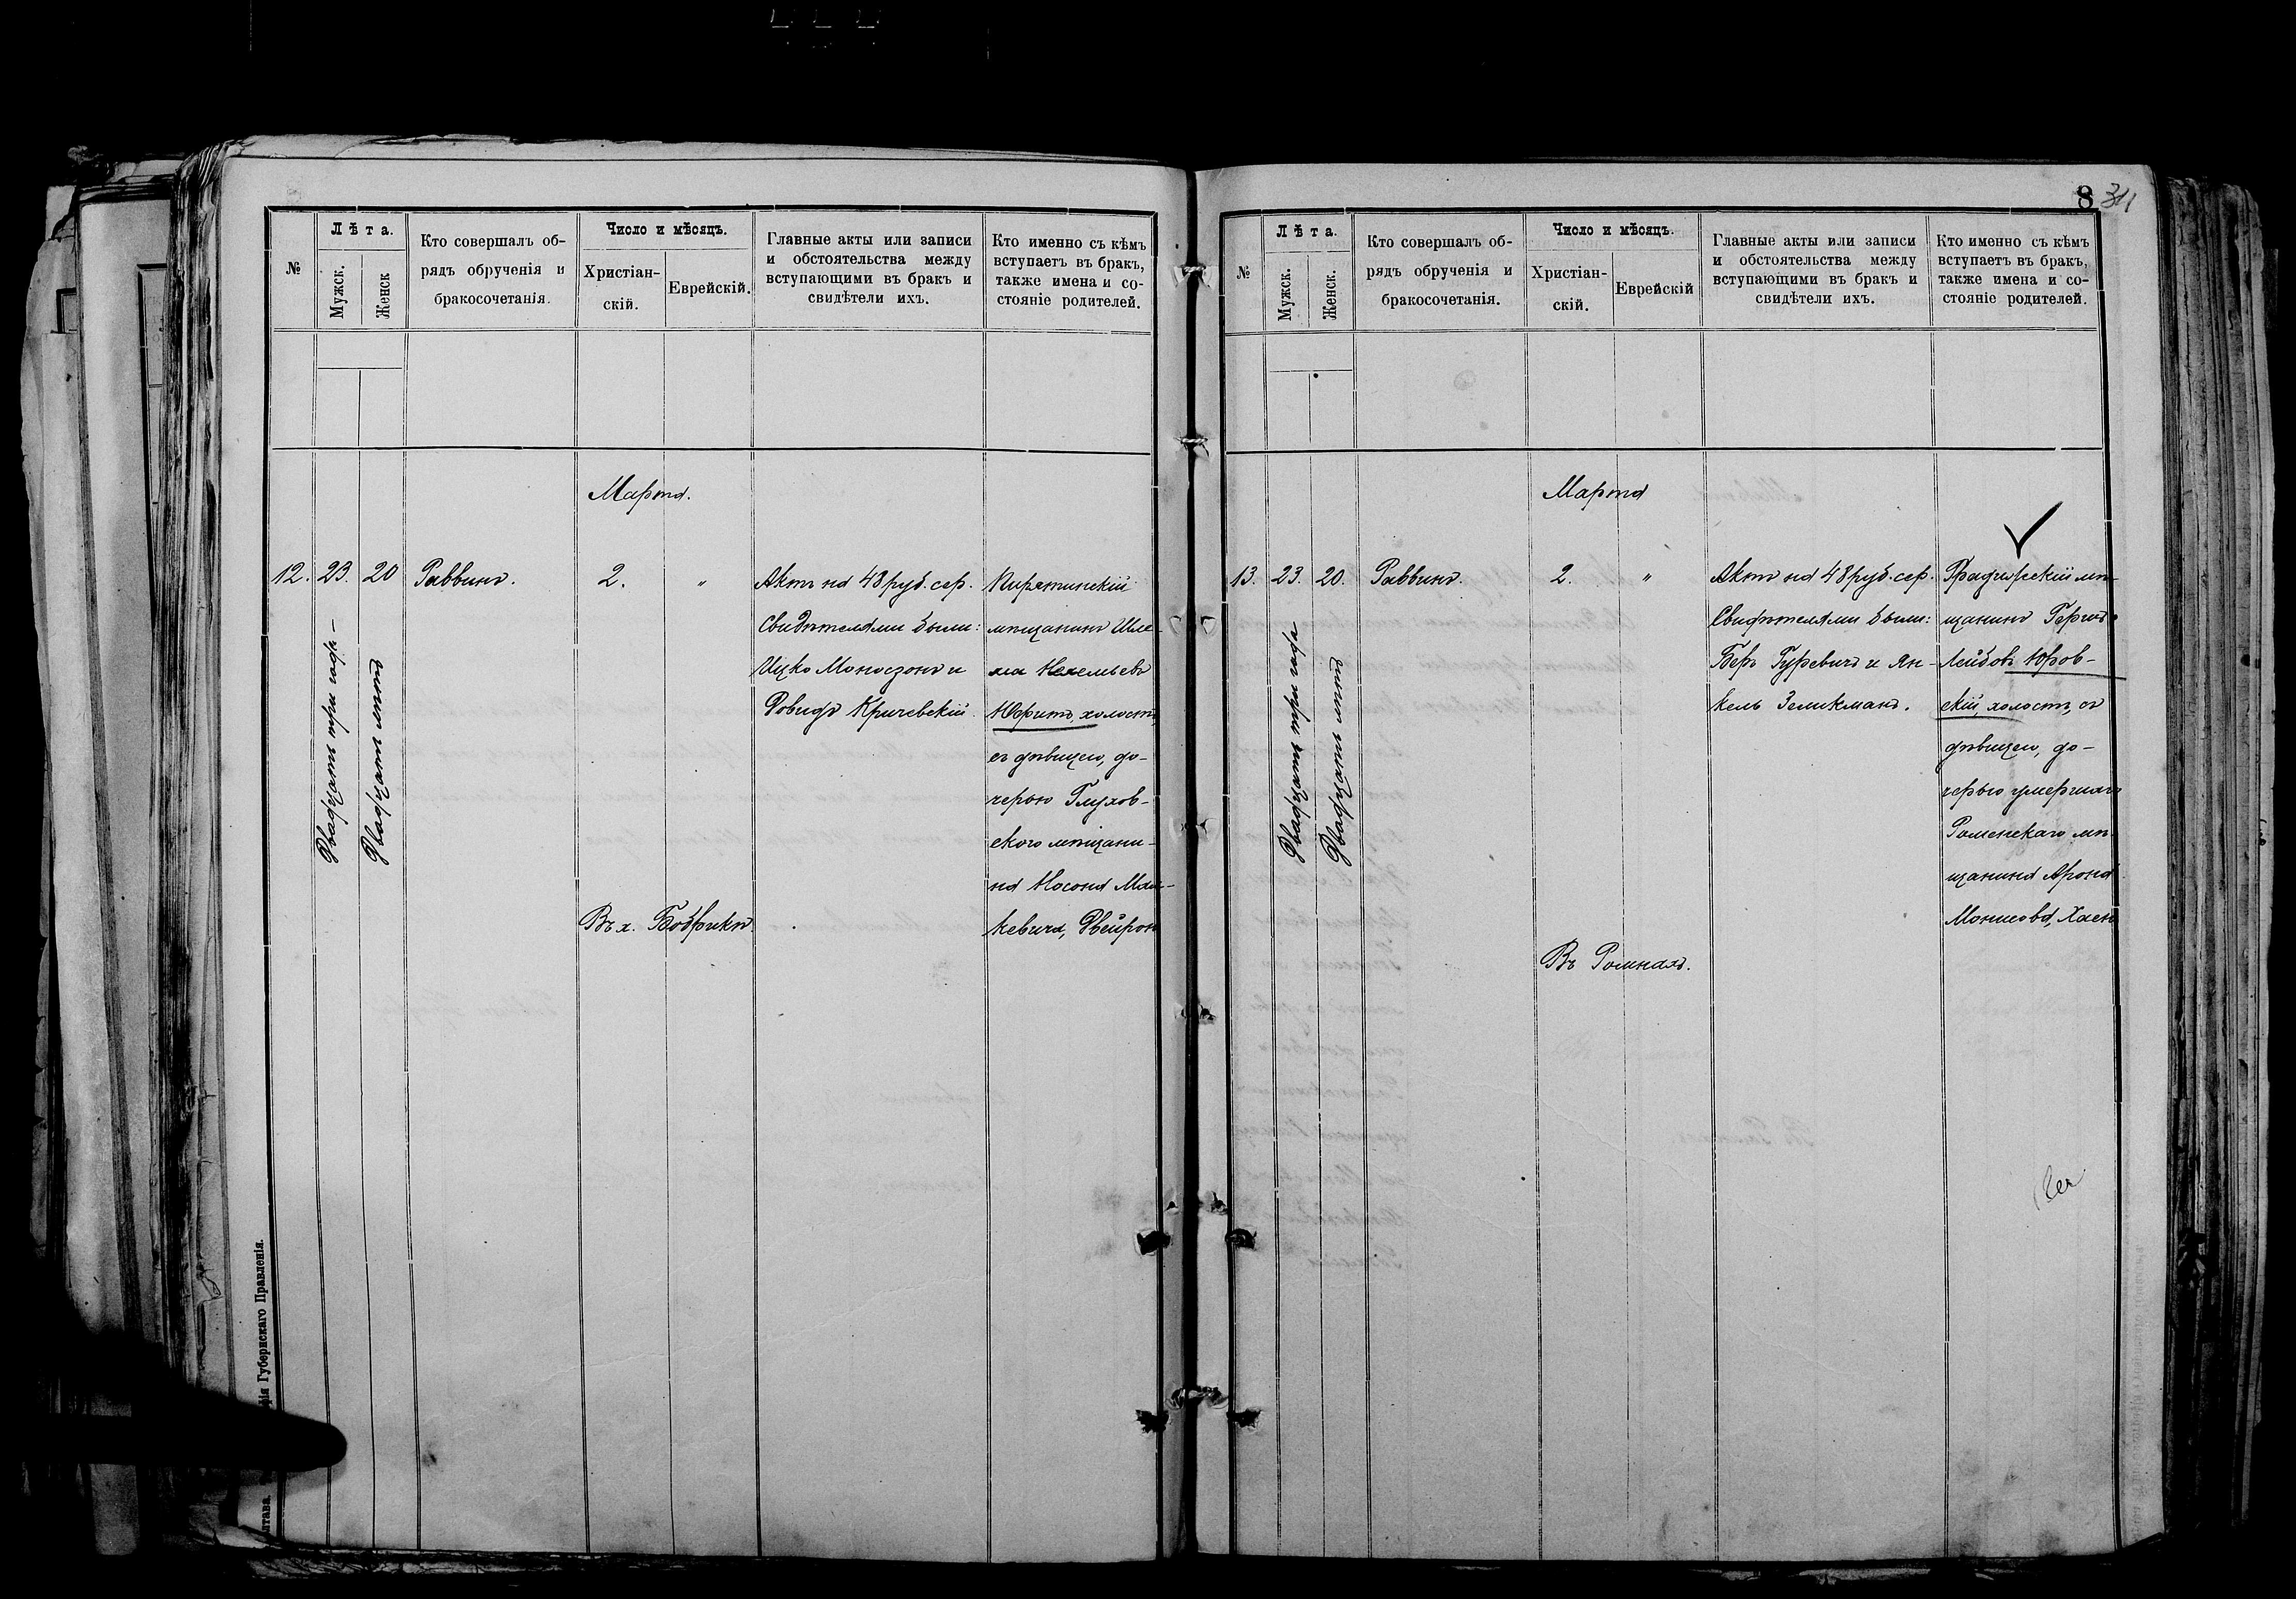 №
Лѣта.
Мужск.
Женск
Кто совершалъ об-
рядъ обрученія и
бракосочетанія.
Число и мѣсяцъ.
Христіан-
скій.
Еврейскій.
Главные акты или записи
и обстоятельства между
вступающими въ бракъ и
свидѣтели ихъ.
Кто именно съ кѣмъ
вступаетъ въ бракъ,
также имена и со-
стояніе родителей.
Марта.
12.
23.
Двадцать три года
20
Двадцать лѣтъ
Раввинъ.
2.
"
Въ х. Бобрикѣ
Актъ на 48 руб. сер.
Свидѣтелями были:
Ицко Моносзонъ и
Довидъ Кричевскій.
Пирятинскій
мѣщанинъ Шле-
ма
холостъ,
съ дѣвицею, до-
черью Глухов-
ского мѣщани-
на Носона
Губернскаго Правленія.
8
311
№
Лѣта.
Мужск.
Женск.
Кто совершалъ об-
рядъ обрученія и
бракосочетанія.
Число и мѣсяцъ.
Христіан-
скій.
Еврейскій
Главные акты или записи
и обстоятельства между
вступающими въ бракъ и
свидѣтели ихъ.
Кто именно съ кѣмъ
вступаетъ въ бракъ,
также имена и со-
стояніе родителей.
Марта
13.
23.
Двадцать три года
20.
Двадцать лѣтъ
Раввинъ.
2.
"
Въ Ромнахъ.
Актъ на 48 руб. сер.
Свидѣтелями были:
Беръ Гуревичъ и Ян-
кель Зеликманъ.
Градижскій мѣ-
щанинъ Гершъ
Лейбовъ Юров-
скій, холостъ, съ
дѣвицею, до-
черью умершаго
Роменскаго мѣ-
щанина Арона
Монисова, Хаею